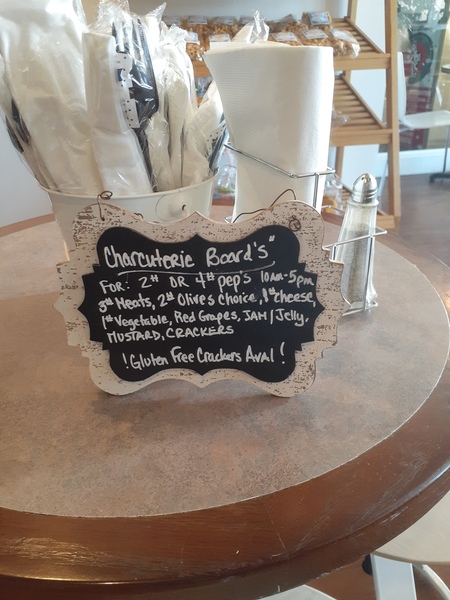 Charcuterie Board's"
FOR: 2# OR 4# pep's 10am-5pm
3# Meats, 2# Olives Choice, 1# cheese,
1# Vegetable, Red Grapes, JAM/Jelly,
MUSTARD, CRACKERS
!Gluten Free Crackers Aval!